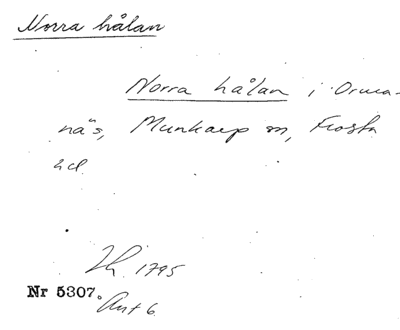 Norra hålan
Norra hålan i Orma-
näs, Munkarp sn, Frosta
hd
1795
Nr 5307.
Ant 6